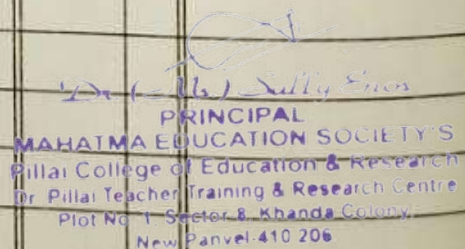 Dr. (Mrs) Sally Enos
PRINCIPAL
MAHATMA EDUCATION SOCIETY'S
Pillai College of Education & Research
Dr Pillai Teacher Training & Research Centre
Plot No 1 Sector 8, Khanda Colony,
New Panvel-410 206